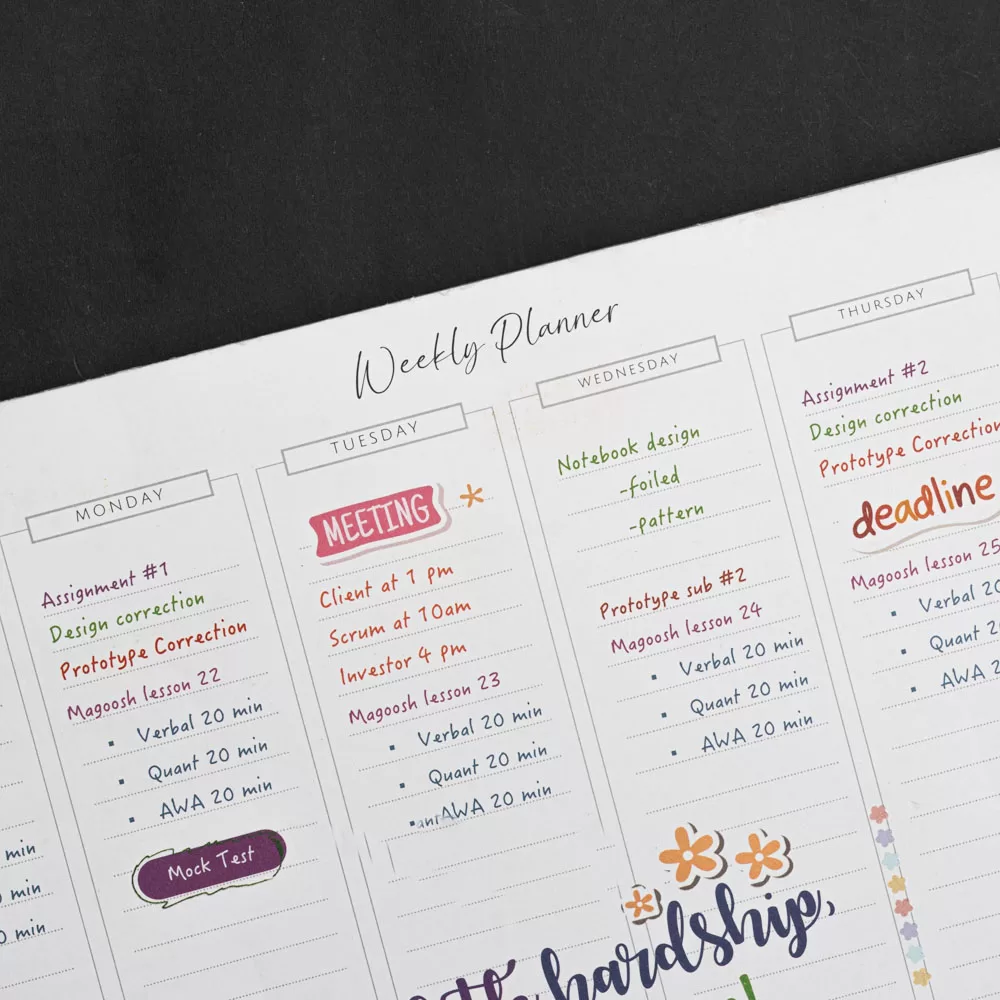 Weekly Planner
min
min
0 min
MONDAY
Assignment #1
Design correction
Prototype Correction
Magoosh lesson 22
▪ Verbal 20 min
▪ Quant 20 min
▪ AWA 20 min
Mock Test
TUESDAY
MEETING
Client at 1 pm
Scrum at 10am
Investor 4 pm
Magoosh lesson 23
▪ Verbal 20 min
▪ Quant 20 min
▪ AWA 20 min
WEDNESDAY
Notebook design
-foiled
-pattern
Prototype sub #2
Magoosh lesson 24
▪ Verbal 20 min
▪ Quant 20 min
▪ AWA 20 min
hardship,
THURSDAY
Assignment #2
Design correction
Prototype Correction
deadline
Magoosh lesson 25
▪ Verbal 20
▪ Quant 2
▪ AWA 2